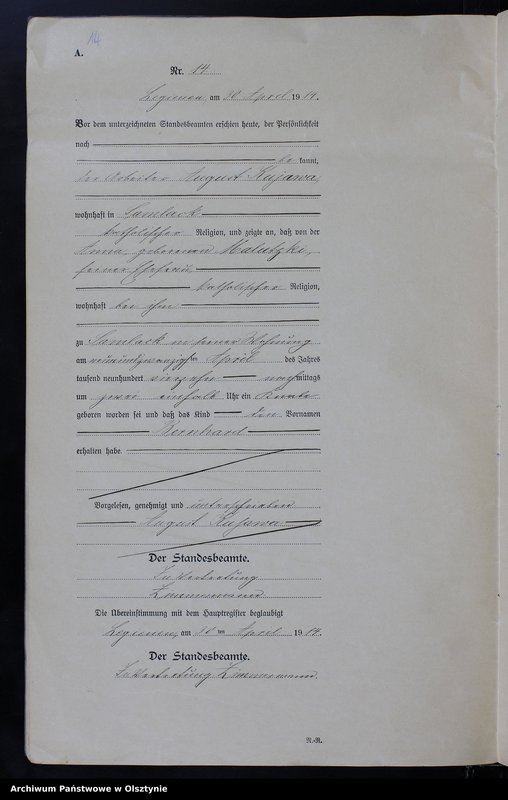 14
A.
Nr. 14
Legienen, am 30 April 1914.
Vor dem unterzeichneten Standesbeamten erschien heute, der Persönlichkeit
nach
be kannt,
der Arbeiter August Kujawa,
wohnhaft in Samlack
katholischer Religion, und zeigte an, daß von der
Anna, geborenen Malutzki,
seiner Ehefrau
katholischer Religion,
wohnhaft bei ihm
zu Samlack in seiner Wohnung
am neunundzwanzigsten April des Jahres
tausend neunhundert vierzehn nachmittags
um zwei einhalb Uhr ein Knabe
geboren worden sei und daß das Kind den Vornamen
Bernhard
erhalten habe.
Vorgelesen, genehmigt und unterschrieben
August Kujawa
Der Standesbeamte.
In Vertretung
Zimmermann
Die Übereinstimmung mit dem Hauptregister beglaubigt
Legienen, am 30 ten April 1914.
Der Standesbeamte.
In Vertretung Zimmermann.
N.-R.
Archiwum Państwowe w Olsztynie